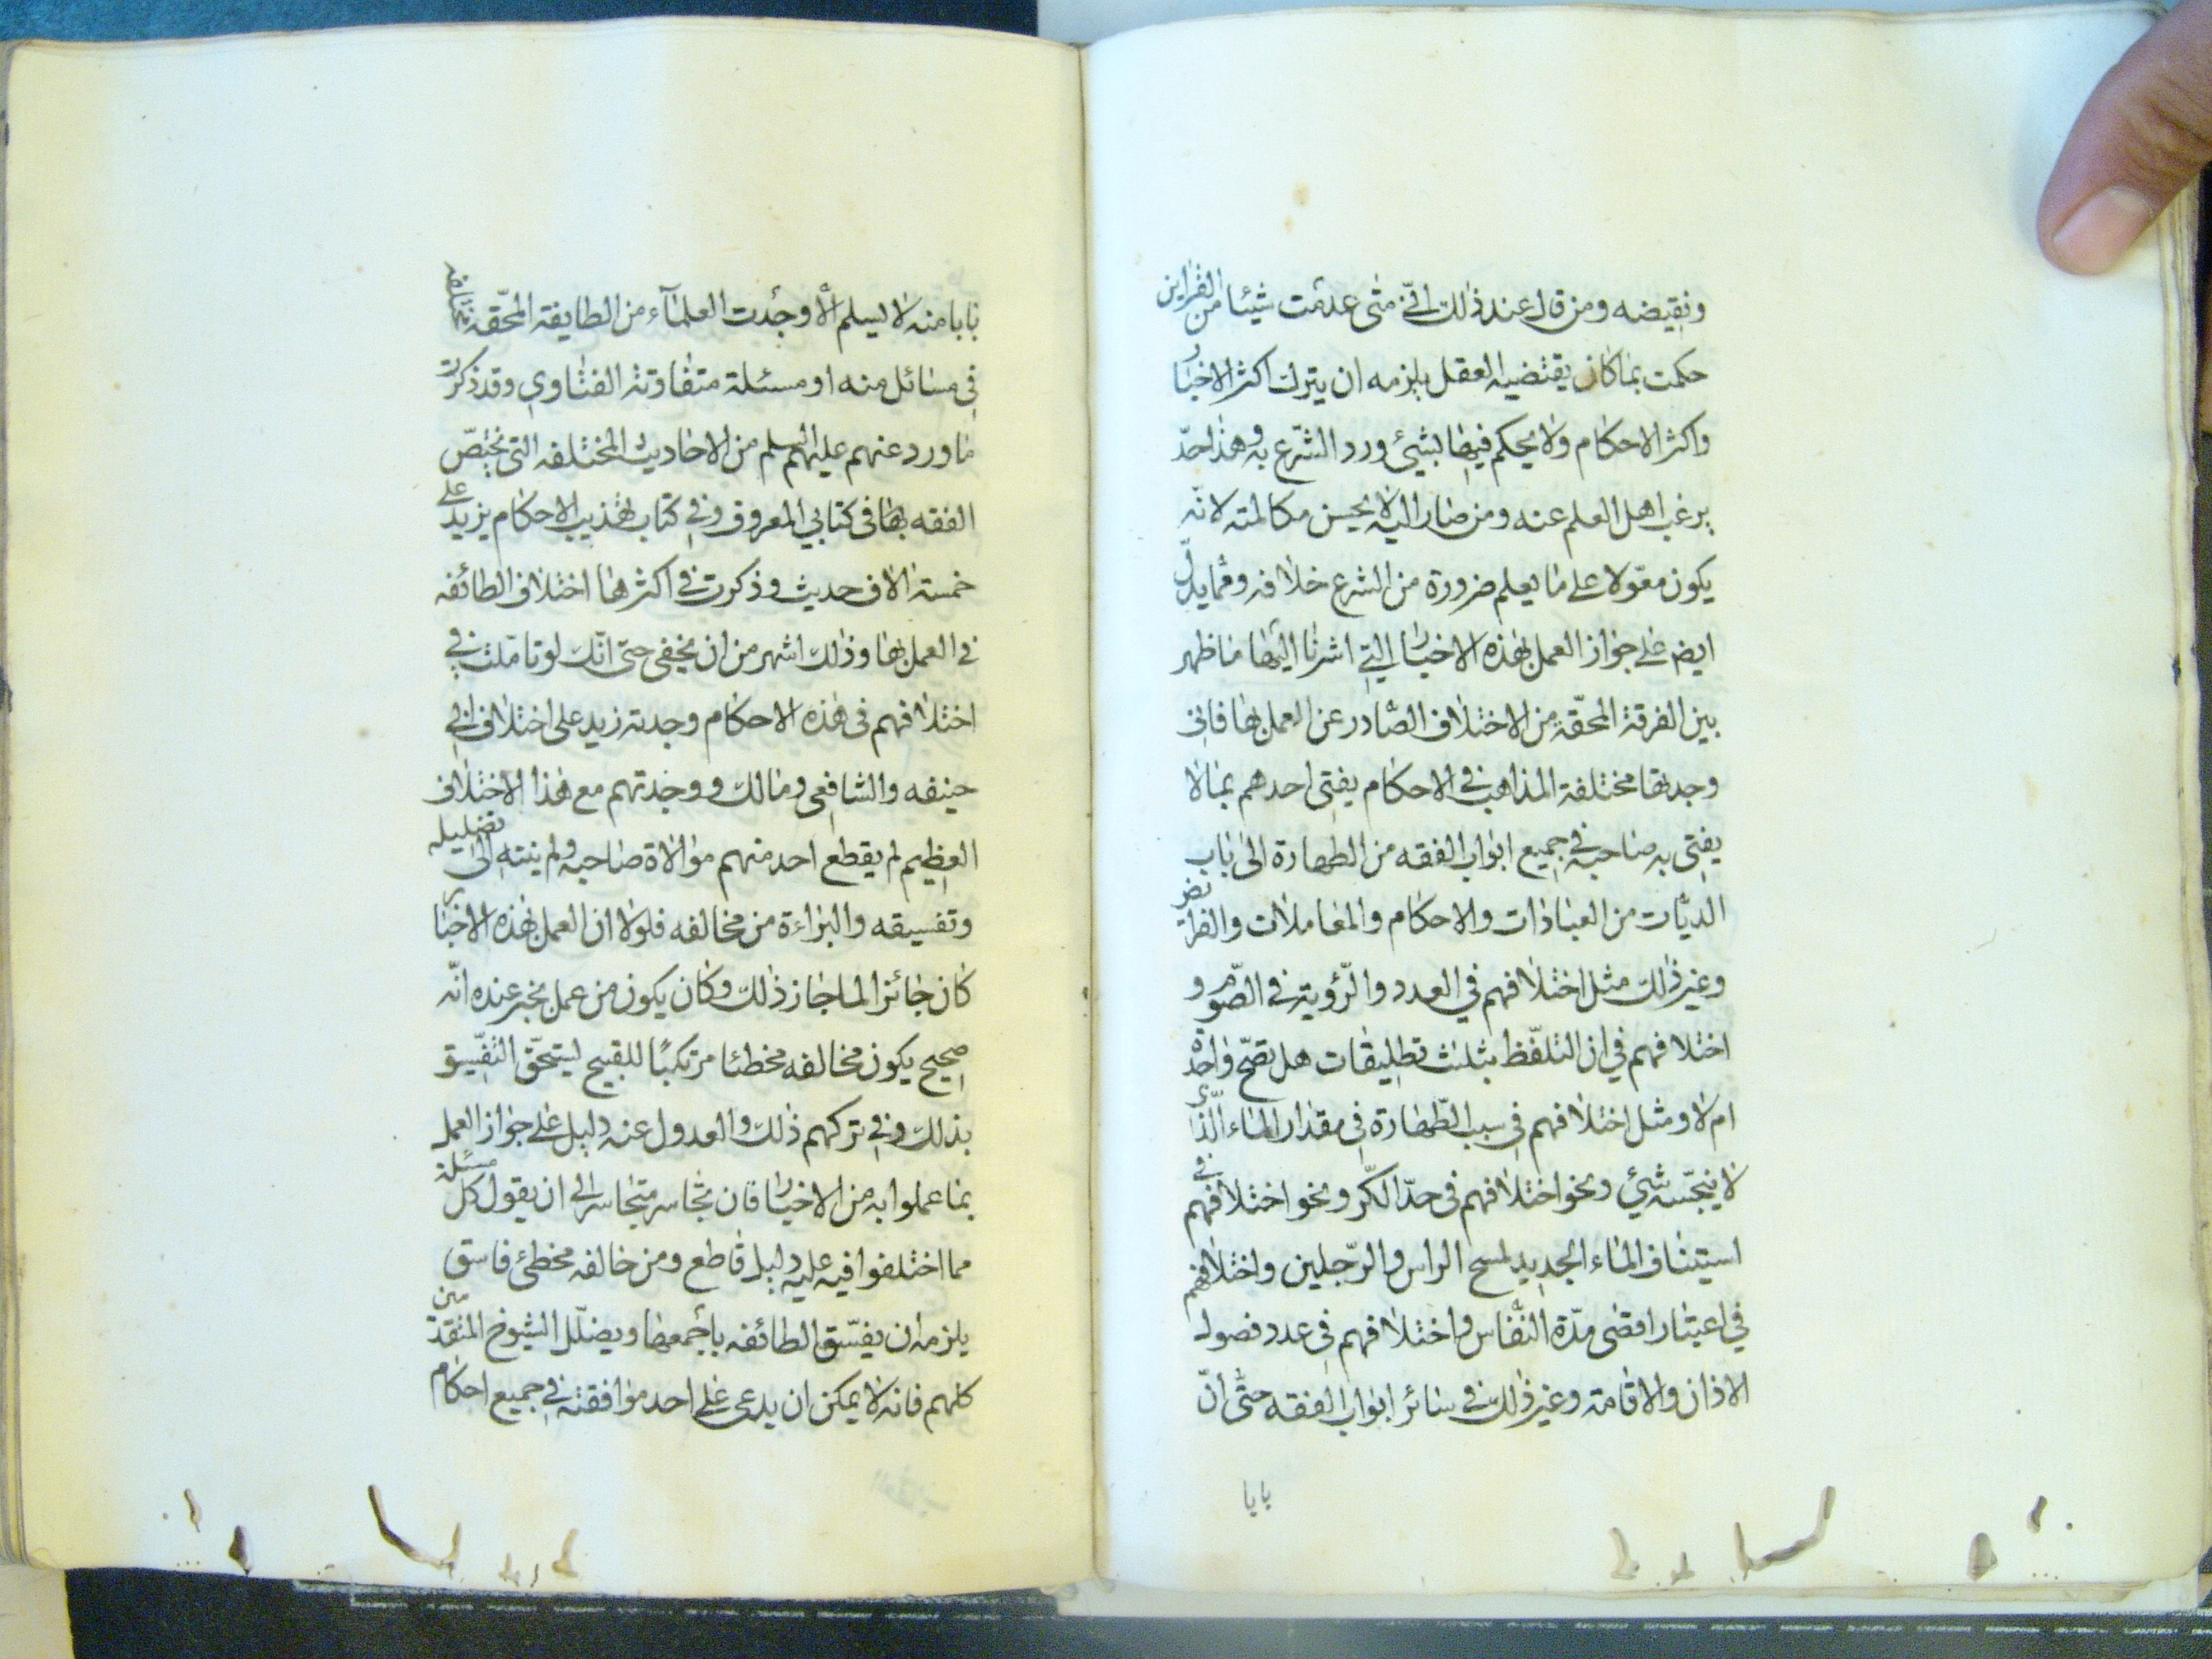 ونقيضه ومن قال عند ذلك انّي متى عدمت شيئا من القراين
حكمت بما كان يقتضيه العقل يلزمه ان يترك اكثر الاخبار
واكثر الاحكام ولا يحكم فيها بشيئ ورد الشّرع به وهذا حدّ
يرغب اهل العلم عنه ومن صار اليه لا يحسن مكالمته لانّه
يكون معوّلا على ما يعلم ضرورة من الشرع خلافه وممّا يدلّ
ايضا على جواز العمل بهذه الاخبار التي اشرنا اليها ما ظهر
بين الفرقة المحقّة من الاختلاف الصّادر عن العمل بها فانّي
وجدتها مختلفة المذاهب في الاحكام يفتي احدهم بما لا
يفتي به صاحبه في جميع ابواب الفقه من الطهارة الى باب
الديّات من العبادات والاحكام والمعاملات والفرائض
وغير ذلك مثل اختلافهم في العدد والرّؤية في الصّوم و
اختلافهم في ان التلفّظ بثلث تطليقات هل تصحّ واحدة
ام لا ومثل اختلافهم في سبب الطّهارة في مقدار الماء الّذي
لا ينجّسه شيئ ونحو اختلافهم في حدّ الكّر ونحو اختلافهم في
استيناف الماء الجديد لمسح الراس والرّجلين واختلافهم
في اعتبار اقصى مدّة النّفاس واختلافهم في عدد فصول
الاذان والاقامة وغير ذلك في سائر ابواب الفقه حتّى انّ
بابا
بابا منه لا يسلم الّا وجدت العلمآء من الطايفة المحقّة مختلفة
في مسائل منه او مسئلة متفاوتة الفتاوي وقد ذكرت
ما ورد عنهم عليهم السلم من الاحاديث المختلفه التي يختصّ
الفقه بها في كتابي المعروف وفي كتاب تهذيب الاحكام يزيد على
خمسة الاف حديث وذكرت في اكثرها اختلاف الطائفه
في العمل بها وذلك اشهر من ان يخفى حتى انّك لو تاملت في
اختلافهم في هذه الاحكام وجدته زيد على اختلاف ابي
حينفه والشافعي ومالك ووجدتهم مع هذا الاختلاف
العظيم لم يقطع احد منهم موالاة صاحبه ولم ينته الى تضليله
وتفسيقه والبراءة من مخالفه فلولا ان العمل بهذه الاخبار
كان جائزا لما جاز ذلك وكان يكون من عمل بخبر عنده انّه
صحيح يكون مخالفه مخطئا مرتكبًا للقبيح ليتحقّ التفّسيق
بذلك وفي تركهم ذلك والعدول عنه دليل على جواز العمل
بما عملوا به من الاخبار فان تجاسر متجاسر الى ان يقول كل مسئلة
مما اختلفوا فيه عليه دليل قاطع ومن خالفه مخطئ فاسق
يلزمه ان يفسّق الطائفه باجمعها ويضلّل الشيوخ المتقدّمين
كلهم فانه لا يمكن ان يدعى على احد موافقته في جميع احكام